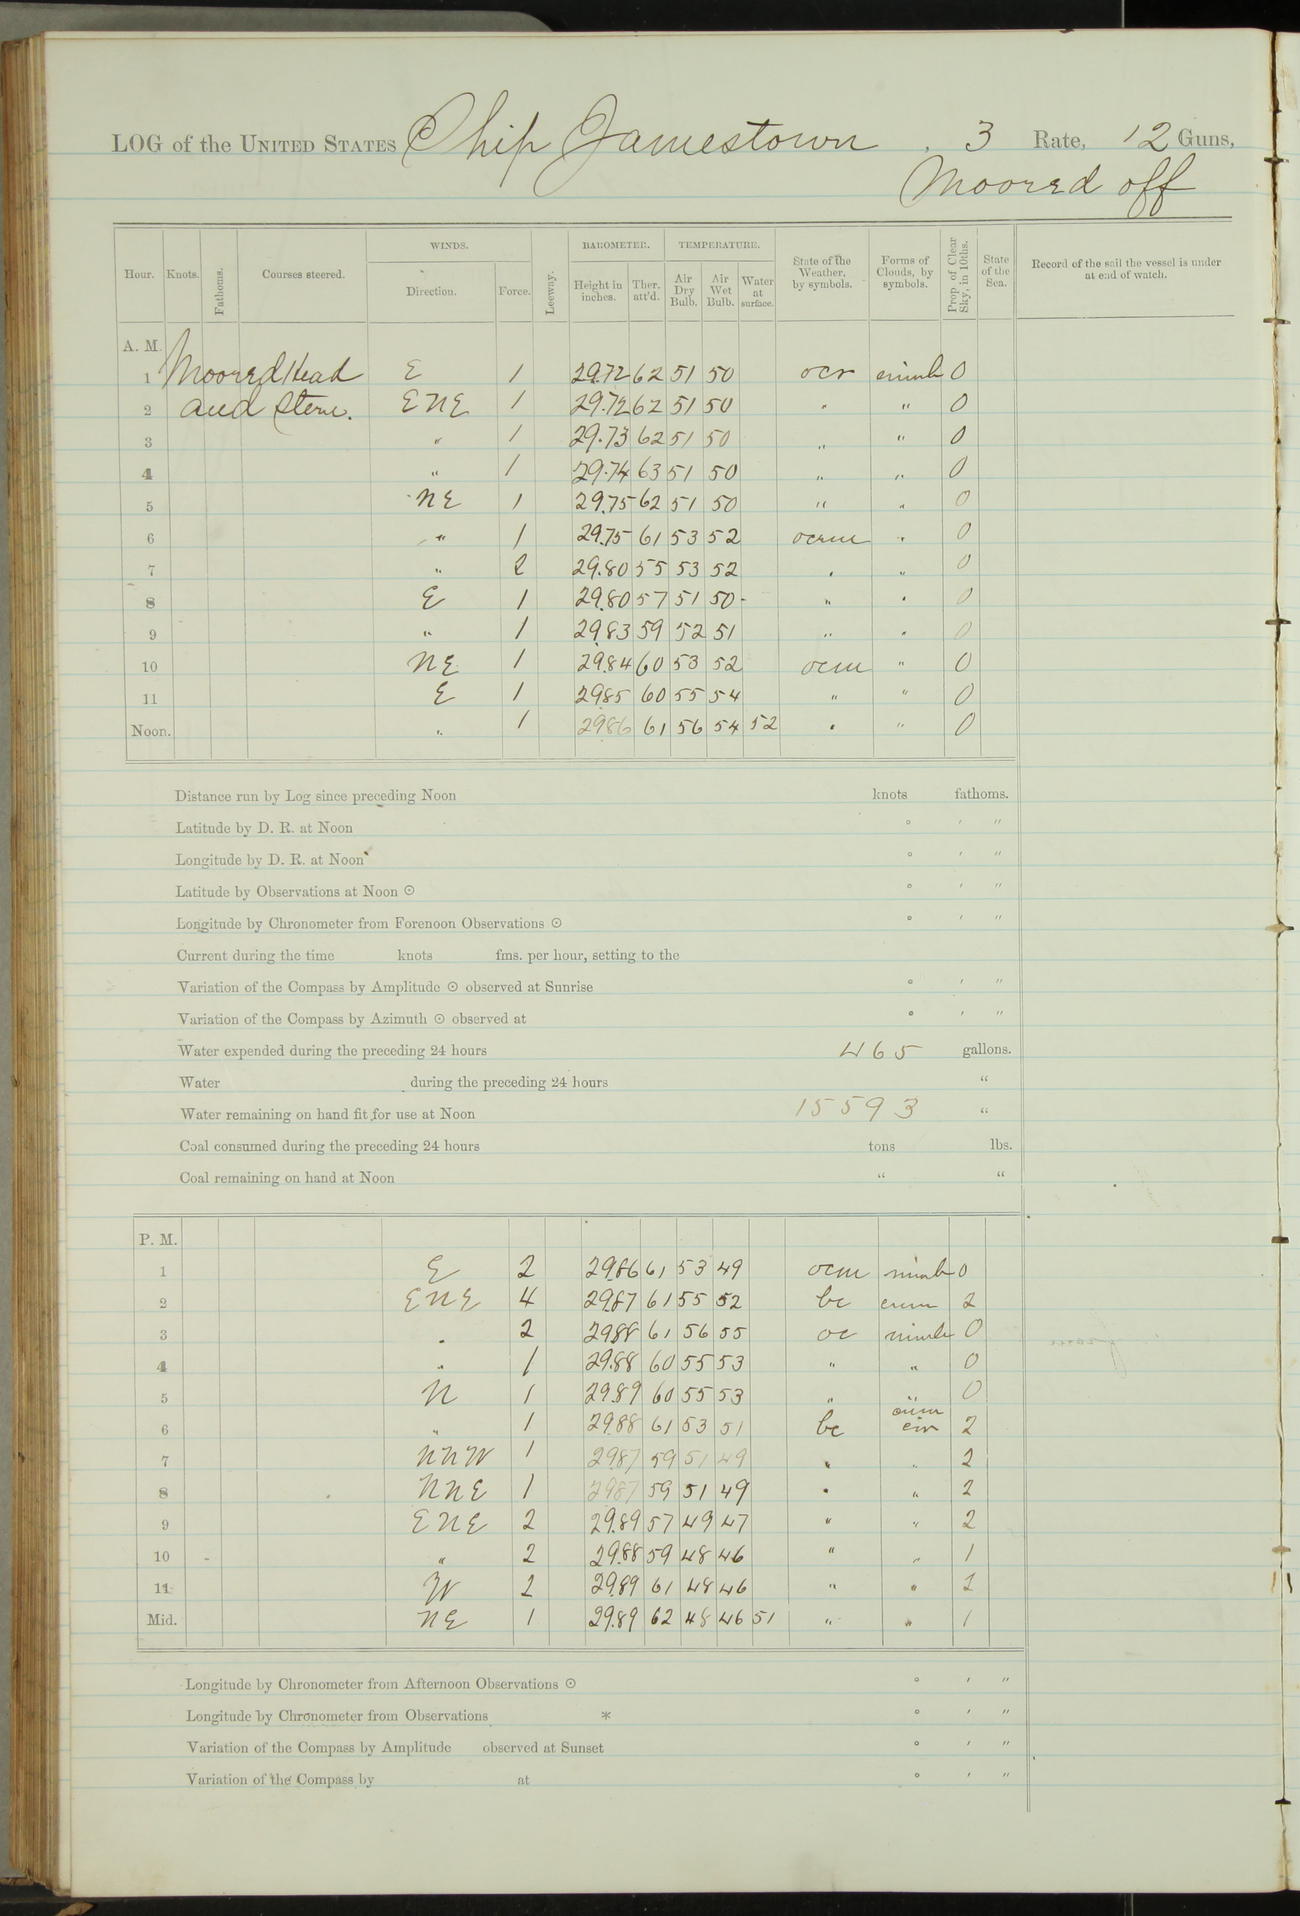 LOG of the UNITED STATES Ship Jamestown , 3 Rate, 12 Guns,
Moored off
Hour. Knots. Fathoms. Courses steered. WINDS. Direction. Force. Leeway. BAROMETER. Height in inches. Ther. att'd. TEMPERATURE. Air Dry Bulb. Air Wet Bulb. Water at surface. State of the Weather, by symbols. Forms of Clouds, by symbols. Prop. of Clear Sky, in 10ths. State of the Sea. Record of the sail the vessel is under at end of watch.
A. M.
1 Moored Head E 1 29.72 62 51 50 ocr 0
2 and Stern. ENE 1 29.72 62 51 50 " " 0
3 " 1 29.73 62 51 50 " " 0
4 " 1 29.74 63 51 50 " " 0
5 NE 1 29.75 62 51 50 " " 0
6 " 1 29.75 61 53 52 ocrm " 0
7 " 2 29.80 55 53 52 " " 0
8 E 1 29.80 57 51 50 " " 0
9 " 1 29.83 59 52 51 " " 0
10 NE 1 29.84 60 53 52 ocm " 0
11 E 1 29.85 60 55 54 " " 0
Noon. " 1 29.86 61 56 54 52 " " 0
Distance run by Log since preceding Noon knots fathoms.
Latitude by D. R. at Noon ° ′ ″
Longitude by D. R. at Noon ° ′ ″
Latitude by Observations at Noon ☉ ° ′ ″
Longitude by Chronometer from Forenoon Observations ☉ ° ′ ″
Current during the time knots fms. per hour, setting to the
Variation of the Compass by Amplitude ☉ observed at Sunrise ° ′ ″
Variation of the Compass by Azimuth ☉ observed at ° ′ ″
Water expended during the preceding 24 hours 465 gallons.
Water during the preceding 24 hours "
Water remaining on hand fit for use at Noon 15593 "
Coal consumed during the preceding 24 hours tons lbs.
Coal remaining on hand at Noon " "
P. M.
1 E 2 29.86 61 53 49 ocm nimb 0
2 ENE 4 29.87 61 55 52 bc cum 2
3 " 2 29.88 61 56 55 oc nimb 0
4 " 1 29.88 60 55 53 " " 0
5 N 1 29.89 60 55 53 " " 0
6 " 1 29.88 61 53 51 bc cum cir 2
7 NNW 1 29.87 59 51 49 " " 2
8 NNE 1 29.87 59 51 49 " " 2
9 ENE 2 29.89 57 49 47 " " 2
10 " 2 29.88 59 48 46 " " 1
11 W 2 29.89 61 48 46 " " 2
Mid. NE 1 29.89 62 48 46 51 " " 1
Longitude by Chronometer from Afternoon Observations ☉ ° ′ ″
Longitude by Chronometer from Observations * ° ′ ″
Variation of the Compass by Amplitude observed at Sunset ° ′ ″
Variation of the Compass by at ° ′ ″